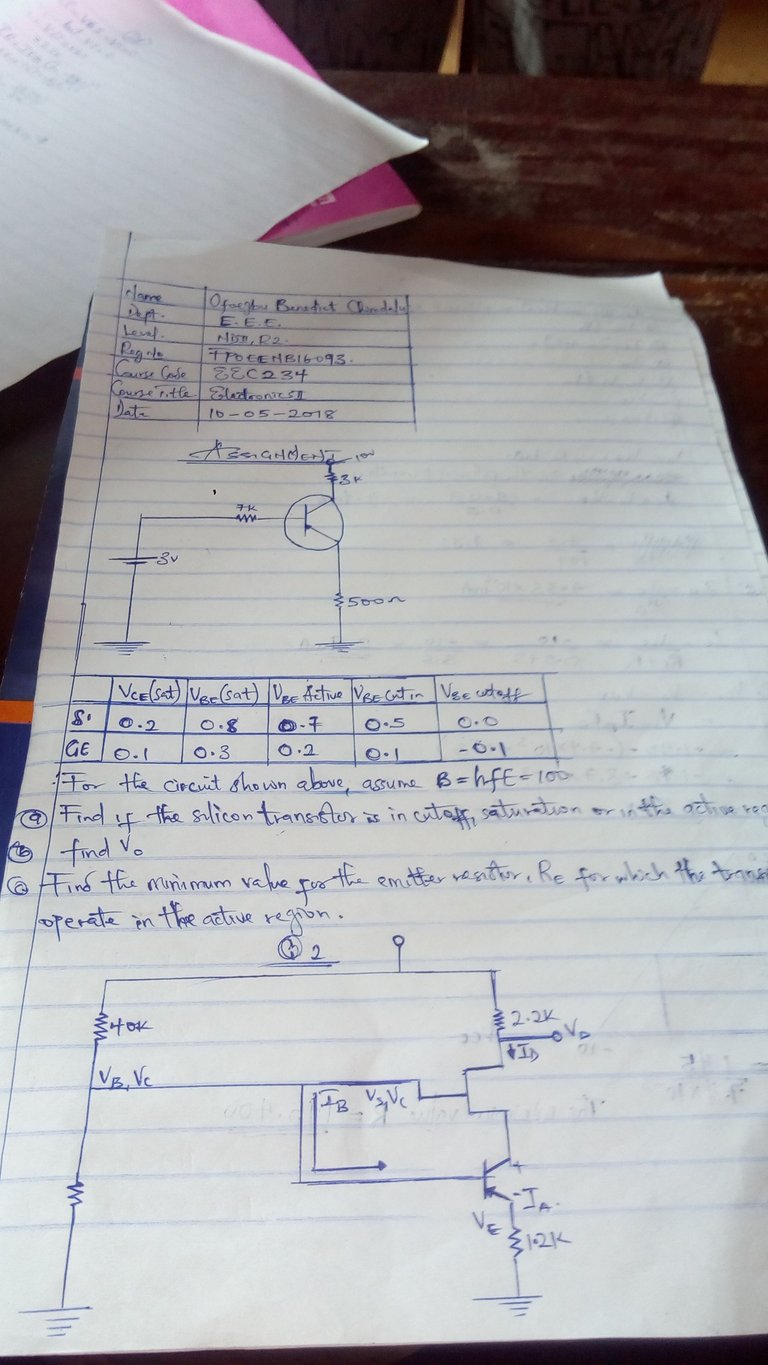 Name
Benedict
Dept. E.E.E.
Level. NDII, R2.
Reg No TPOEENB16093.
Course Code EEC234
Course Title Electronics II
Date 10-05-2018
ASSIGNMENT
3K
7K
3v
500Ω
VCE(sat) VBE(sat) VBE Active VBE Cut in VBE cutoff
Si 0.2 0.8 0.7 0.5 0.0
GE 0.1 0.3 0.2 0.1 -0.1
For the circuit shown above, assume B = hfE = 100
(a) Find if the silicon transistor is in cutoff, saturation or in the active
(b) find Vo
(c) Find the minimum value for the emitter resistor, RE for which the
operate in the active region.
Q 2
40K
2.2K
VD
ID
VB, VC
IB
VS, VC
+
- IA.
VE
1.2K